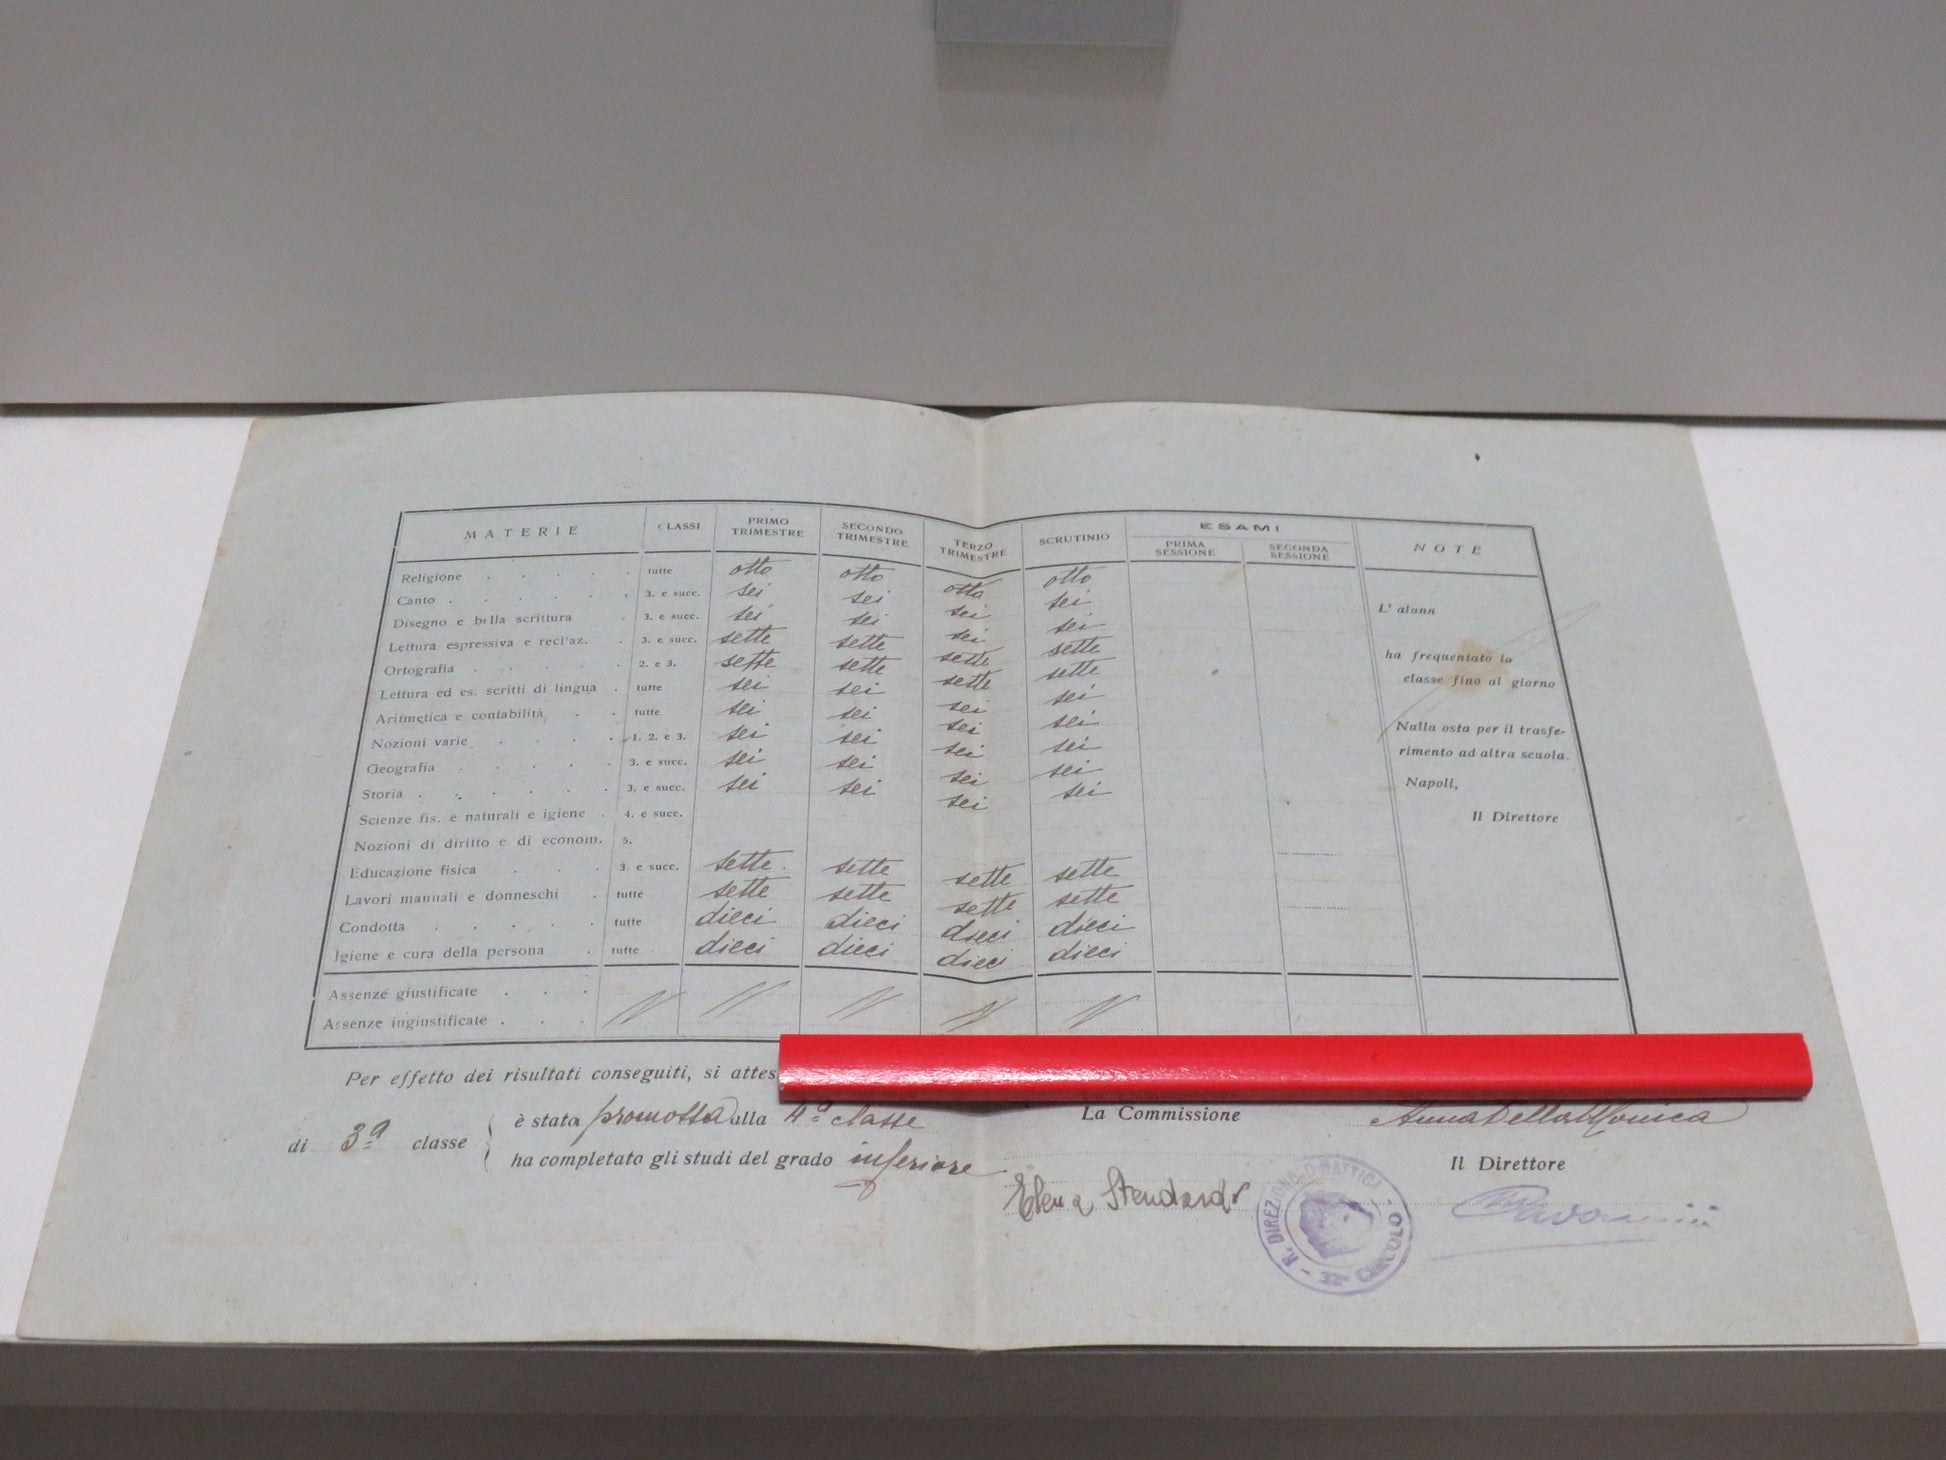 MATERIE CLASSI PRIMO TRIMESTRE SECONDO TRIMESTRE TERZO TRIMESTRE SCRUTINIO ESAMI PRIMA SESSIONE SECONDA SESSIONE NOTE
Religione tutte otto otto otto otto
Canto 3. e succ. sei sei sei sei
Disegno e bella scrittura 3. e succ. sei sei sei sei
Lettura espressiva e recitaz. 3. e succ. sette sette sette sette
Ortografia 2. e 3. sette sette sette sette
Lettura ed es. scritti di lingua tutte sei sei sei sei
Aritmetica e contabilità tutte sei sei sei sei
Nozioni varie 1. 2. e 3. sei sei sei sei
Geografia 3. e succ. sei sei sei sei
Storia 3. e succ. sei sei sei sei
Scienze fis. e naturali e igiene 4. e succ.
Nozioni di diritto e di econom. 5.
Educazione fisica 3. e succ. sette sette sette sette
Lavori manuali e donneschi tutte sette sette sette sette
Condotta tutte dieci dieci dieci dieci
Igiene e cura della persona tutte dieci dieci dieci dieci
Assenze giustificate
Assenze ingiustificate
L' alunn
ha frequentato la
classe fino al giorno
Nulla osta per il trasfe-
rimento ad altra scuola.
Napoli,
Il Direttore
Per effetto dei risultati conseguiti, si attes
di 3ª classe
è stata promossa alla 4ª classe
ha completato gli studi del grado inferiore
La Commissione
Elena
Anna Della Monica
Il Direttore
R. DIREZIONE DIDATTICA - CIRCOLO